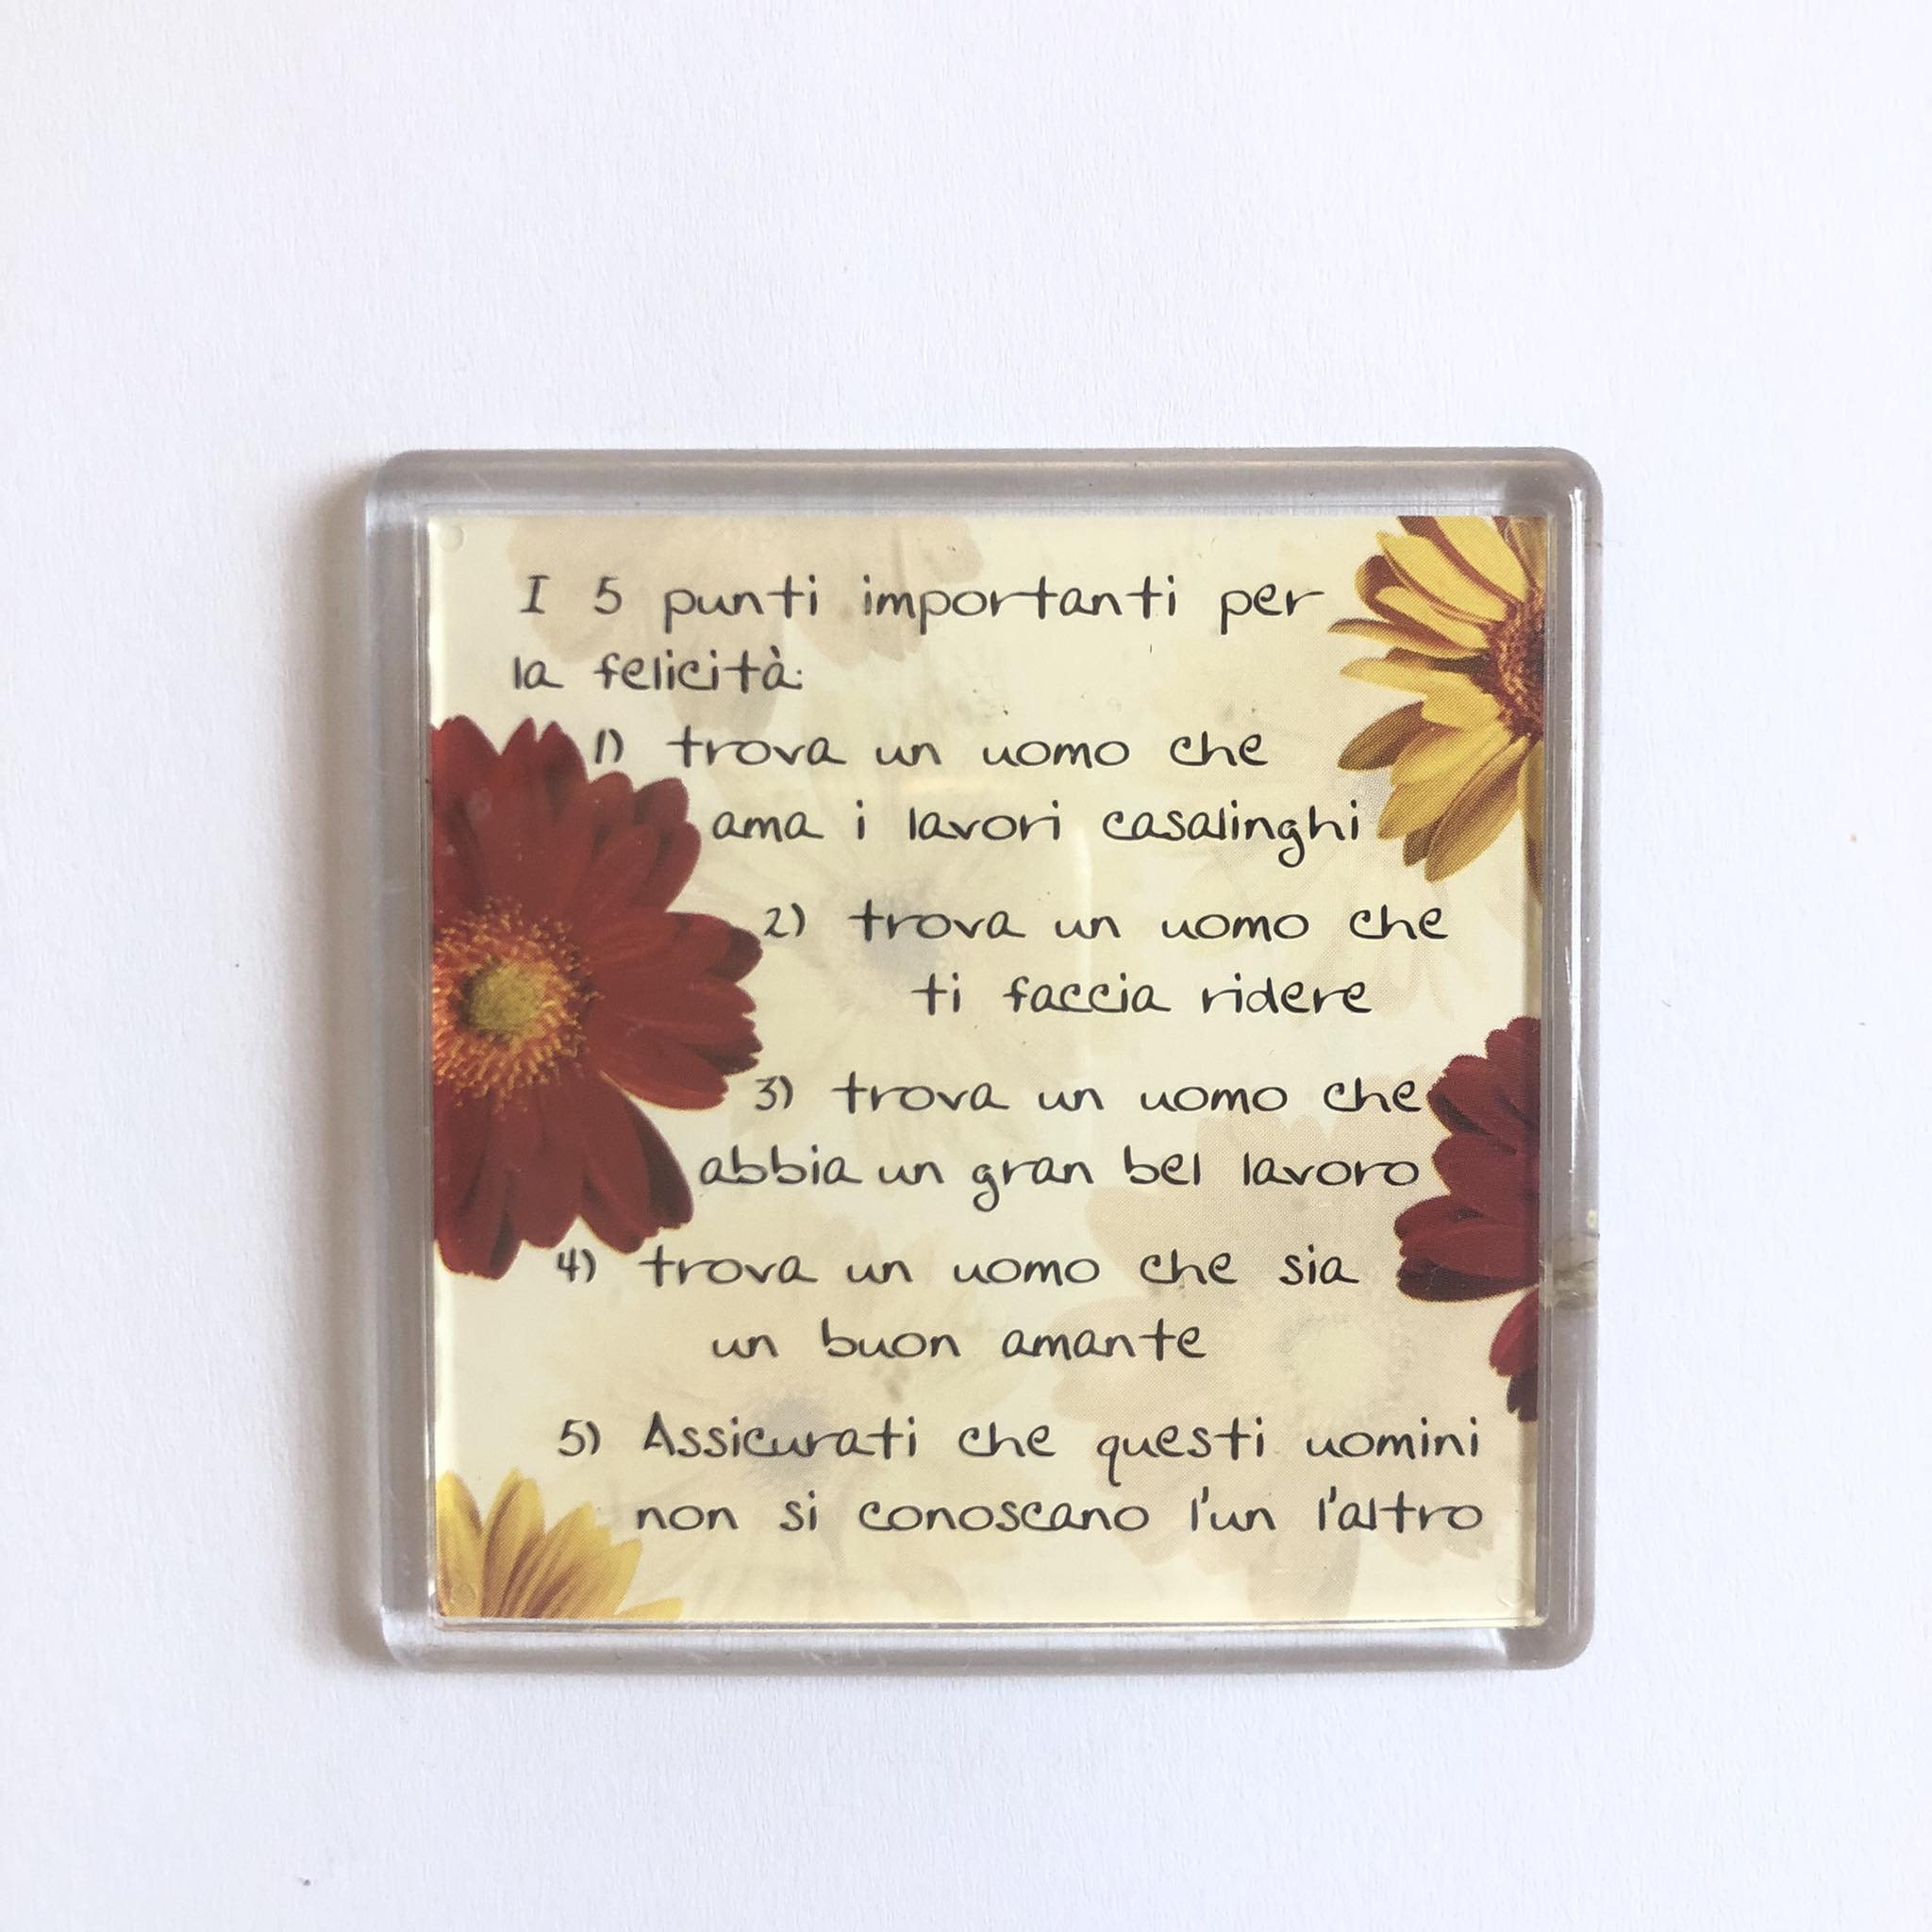 I 5 punti importanti per
la felicità:
1) trova un uomo che
ama i lavori casalinghi
2) trova un uomo che
ti faccia ridere
3) trova un uomo che
abbia un gran bel lavoro
4) trova un uomo che sia
un buon amante
5) Assicurati che questi uomini
non si conoscano l'un l'altro